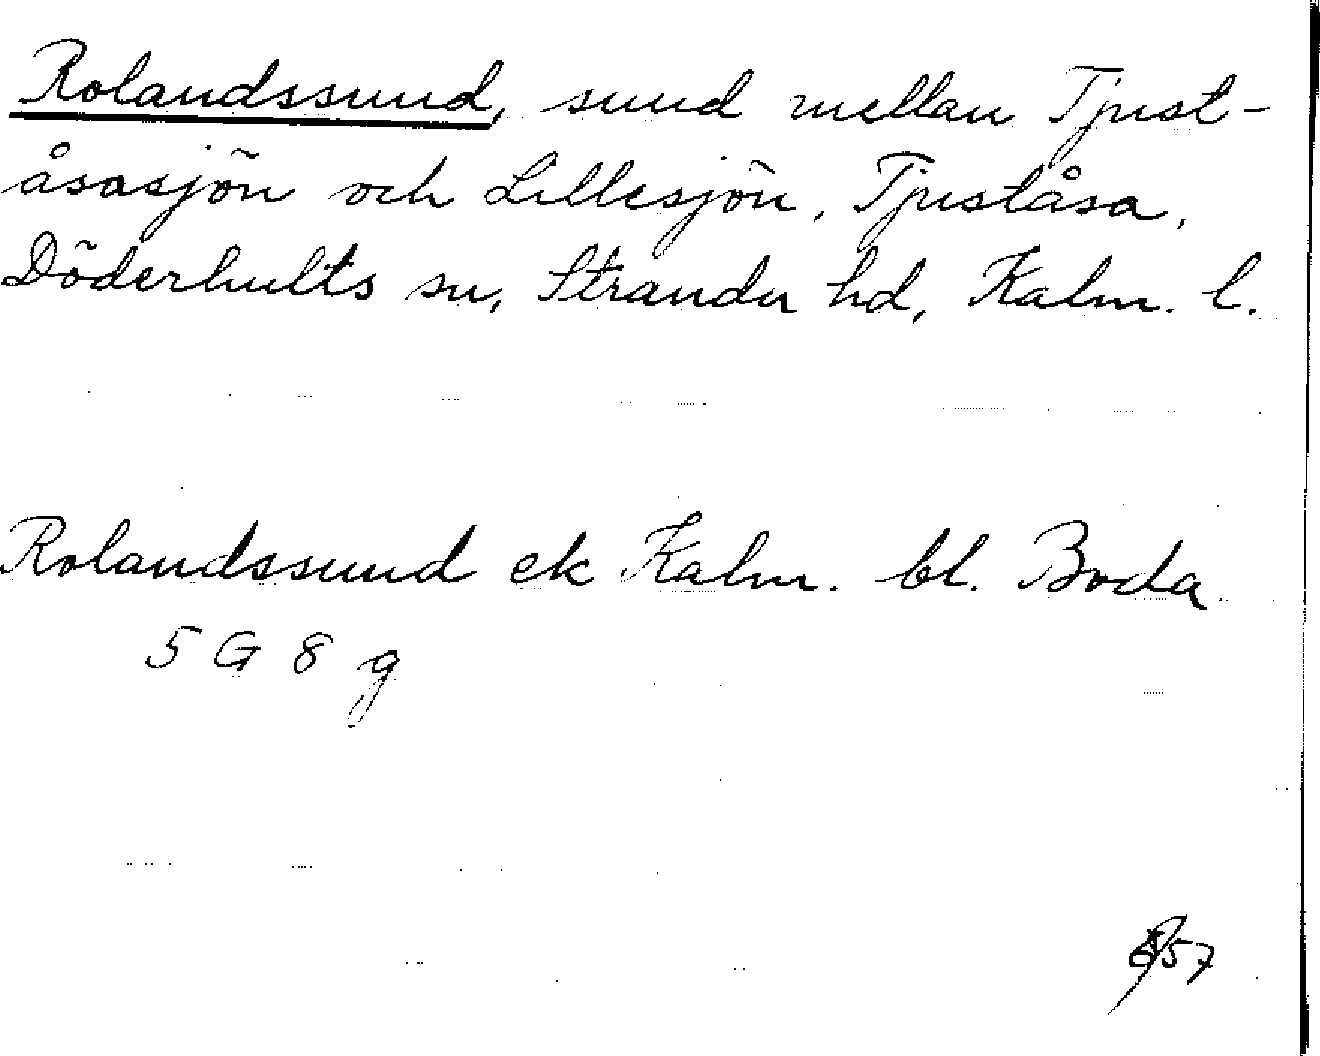 Rolandssund, sund mellan Tjust-
åsasjön och Lillesjön, Tjuståsa,
Döderhults sn, Stranda hd, Kalm. l.
Rolandssund ek Kalm. bl. Boda
5 G 8 g
57